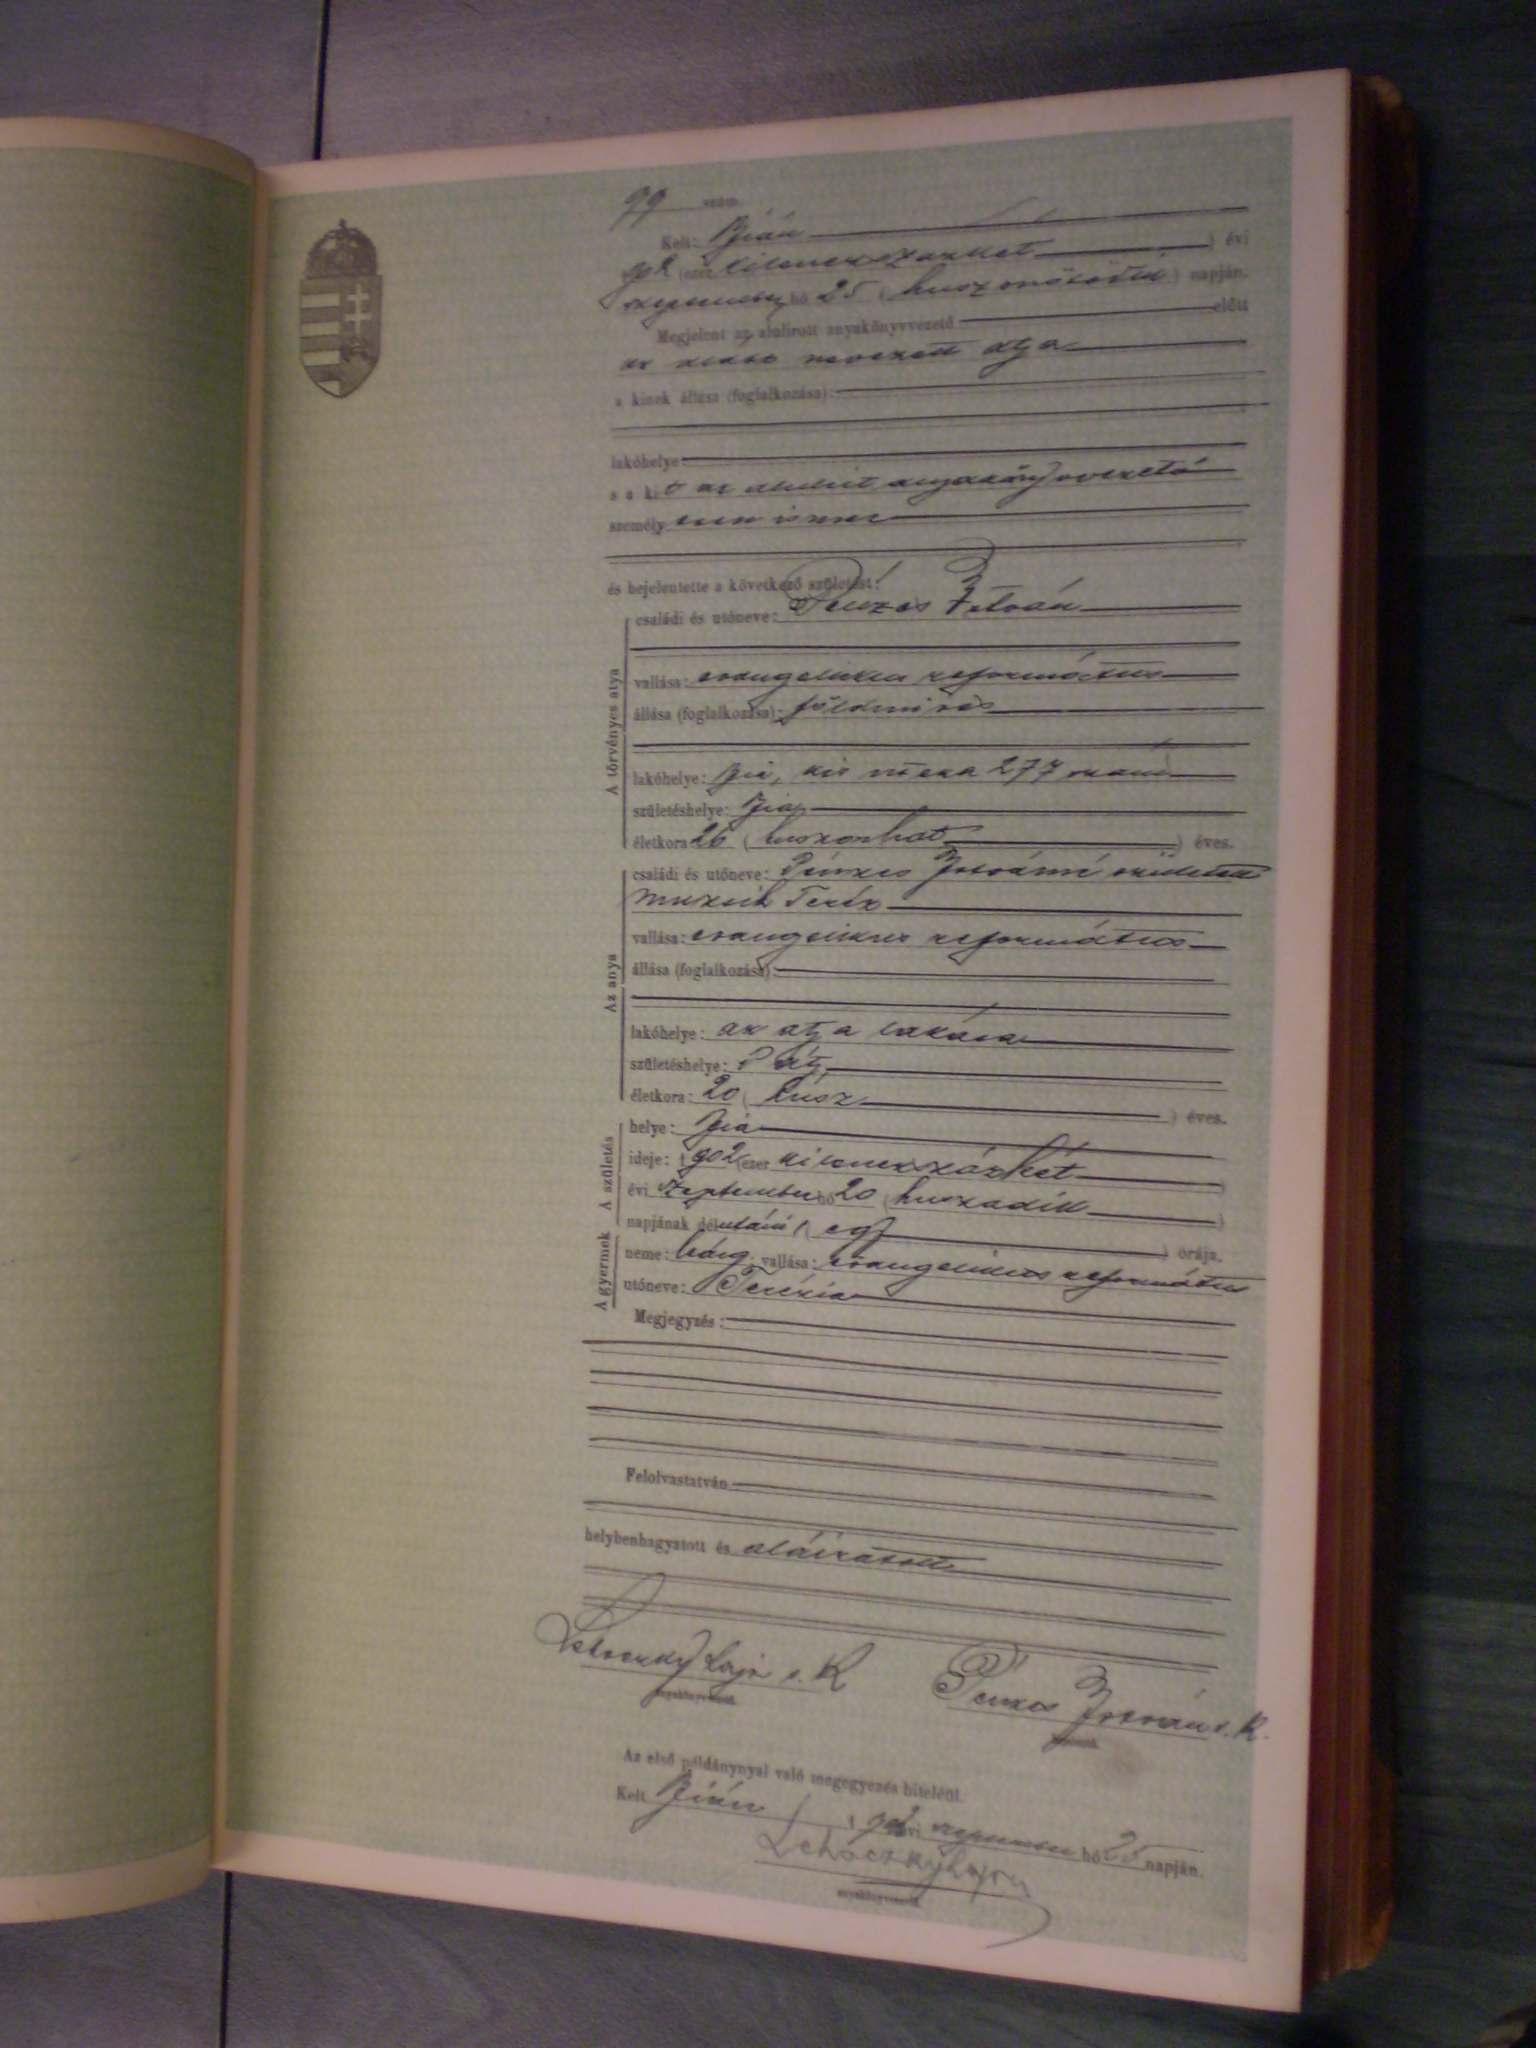 99 szám.
Kelt: Bián
902 (ezer kilenczszázkét) évi
szeptember hó 25 (huszonötödik) napján.
Megjelent az alulirott anyakönyvvezető előtt
az alább nevezett atya
a kinek állása (foglalkozása):
lakóhelye
s a kit az alulirt anyakönyvvezető
személyesen ismer
és bejelentette a következő születést:
A törvényes atya
családi és utóneve: Pénzes István
vallása: evangelikus református
állása (foglalkozása): földmives
lakóhelye: Bia, kis utcza 277 szám
születéshelye: Bia
életkora 26 (huszonhat) éves.
Az anya
családi és utóneve: Pénzes Istvánné született
Muzsik Teréz
vallása: evangelikus református
állása (foglalkozása):
lakóhelye: az atya lakása
születéshelye: Páty
életkora: 20 (húsz) éves.
A születés
helye: Bia
ideje: 1902 (ezer kilenczszázkét)
évi szeptember hó 20 (huszadik)
napjának délutáni 1 (egy) órája.
A gyermek
neme: leány vallása: evangelikus református
utóneve: Terézia
Megjegyzés:
Felolvastatván
helybenhagyatott és aláiratott
Lehoczky Lajos s. k. Pénzes István s. k.
anyakönyvvezető
Az első példánynyal való megegyezés hiteléül.
Kelt Bián, 1902 évi szeptember hó 25 napján.
Lehoczky Lajos
anyakönyvvezető